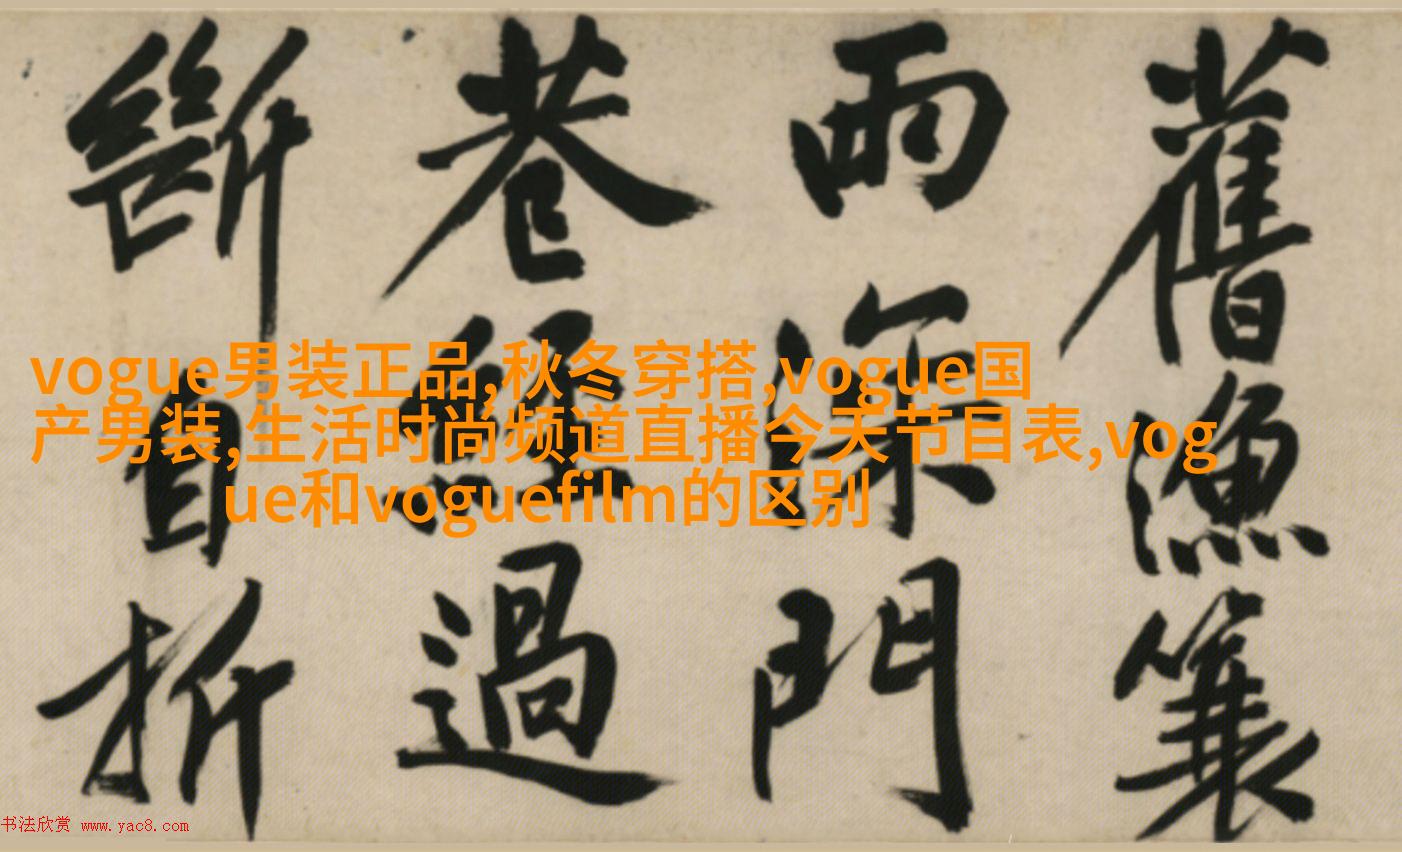 舊漁簑
雨深門
巷經過
斷自折
vogue男装正品,秋冬穿搭,vogue国
产男装,生活时尚频道直播今天节目表,vog
ue和voguefilm的区别
书法欣赏 www.yac8.com